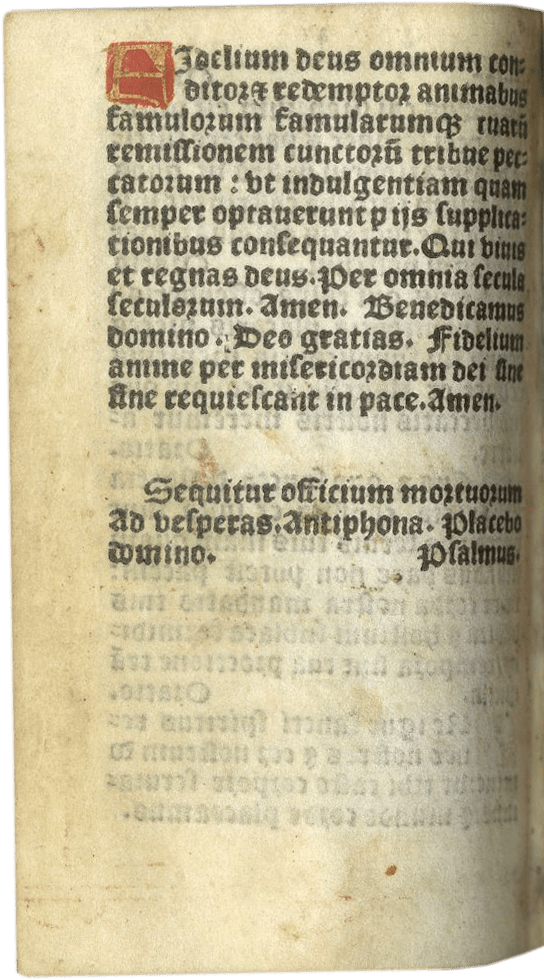 Fidelium deus omnium con⸗
ditor ⁊ redemptor animabus
famulorum famularumqꝫ tuarũ
remissionem cunctorũ tribue pec⸗
catorum : vt indulgentiam quam
semper optauerunt pijs supplica⸗
tionibus consequantur. Qui viuis
et regnas deus. Per omnia secula
seculorum. Amen. Benedicamus
domino. Deo gratias. Fidelium
anime per misericordiam dei sine
fine requiescant in pace. Amen.
Sequitur officium mortuorum
Ad vesperas. Antiphona. Placebo
domino. Psalmus.